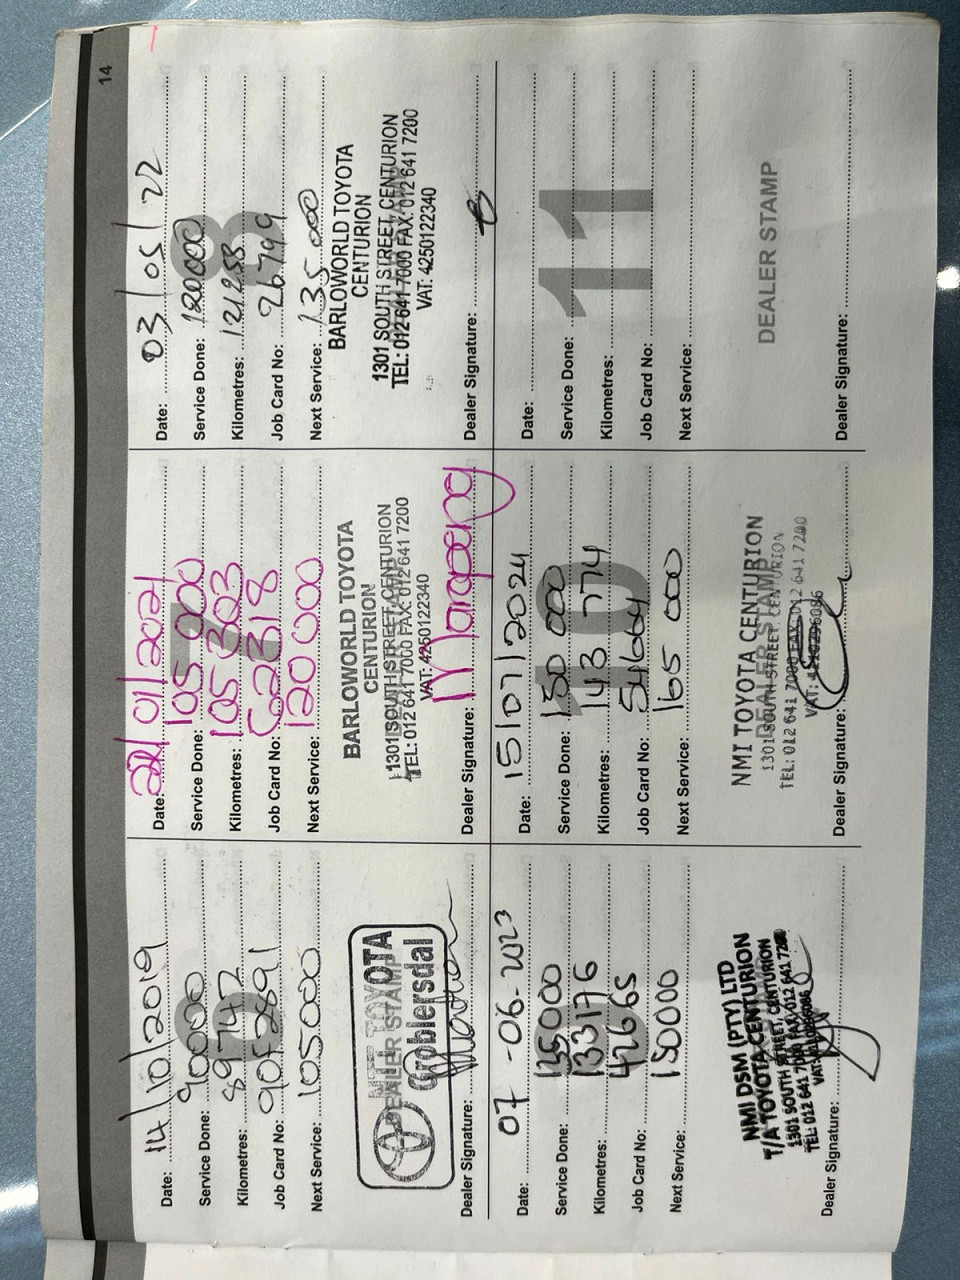 14
Date: 14/10/2019
Service Done: 90000
Kilometres: 89742
Job Card No:
Next Service: 105000
MTT TOYOTA
DEALER STAMP
Groblersdal
Dealer Signature:
Date: 22/01/2021
Service Done: 105 000
7
Kilometres: 105 303
Job Card No: 502318
Next Service: 120 000
BARLOWORLD TOYOTA
CENTURION
1301 SOUTH STREET, CENTURION
TEL: 012 641 7000 FAX: 012 641 7200
VAT: 4250122340
Dealer Signature:
Date: 03/05/22
Service Done: 120000
8
Kilometres: 121253
Job Card No: 26799
Next Service: 135 000
BARLOWORLD TOYOTA
CENTURION
1301 SOUTH STREET, CENTURION
TEL: 012 641 7000 FAX: 012 641 7200
VAT: 4250122340
Dealer Signature:
Date: 07-06-2023
Service Done: 135000
Kilometres: 133176
Job Card No: 42665
Next Service: 150000
NMI DSM (PTY) LTD
T/A TOYOTA CENTURION
1301 SOUTH STREET, CENTURION
TEL: 012 641 7000 FAX: 012 641 7200
Dealer Signature:
Date: 15/07/2024
Service Done: 150 000
10
Kilometres: 143 774
Job Card No: 54664
Next Service: 165 000
NMI TOYOTA CENTURION
DEALER STAMP
1301 SOUTH STREET, CENTURION
TEL: 012 641 7000 FAX: 012 641 7200
Dealer Signature:
Date:
Service Done:
11
Kilometres:
Job Card No:
Next Service:
DEALER STAMP
Dealer Signature: